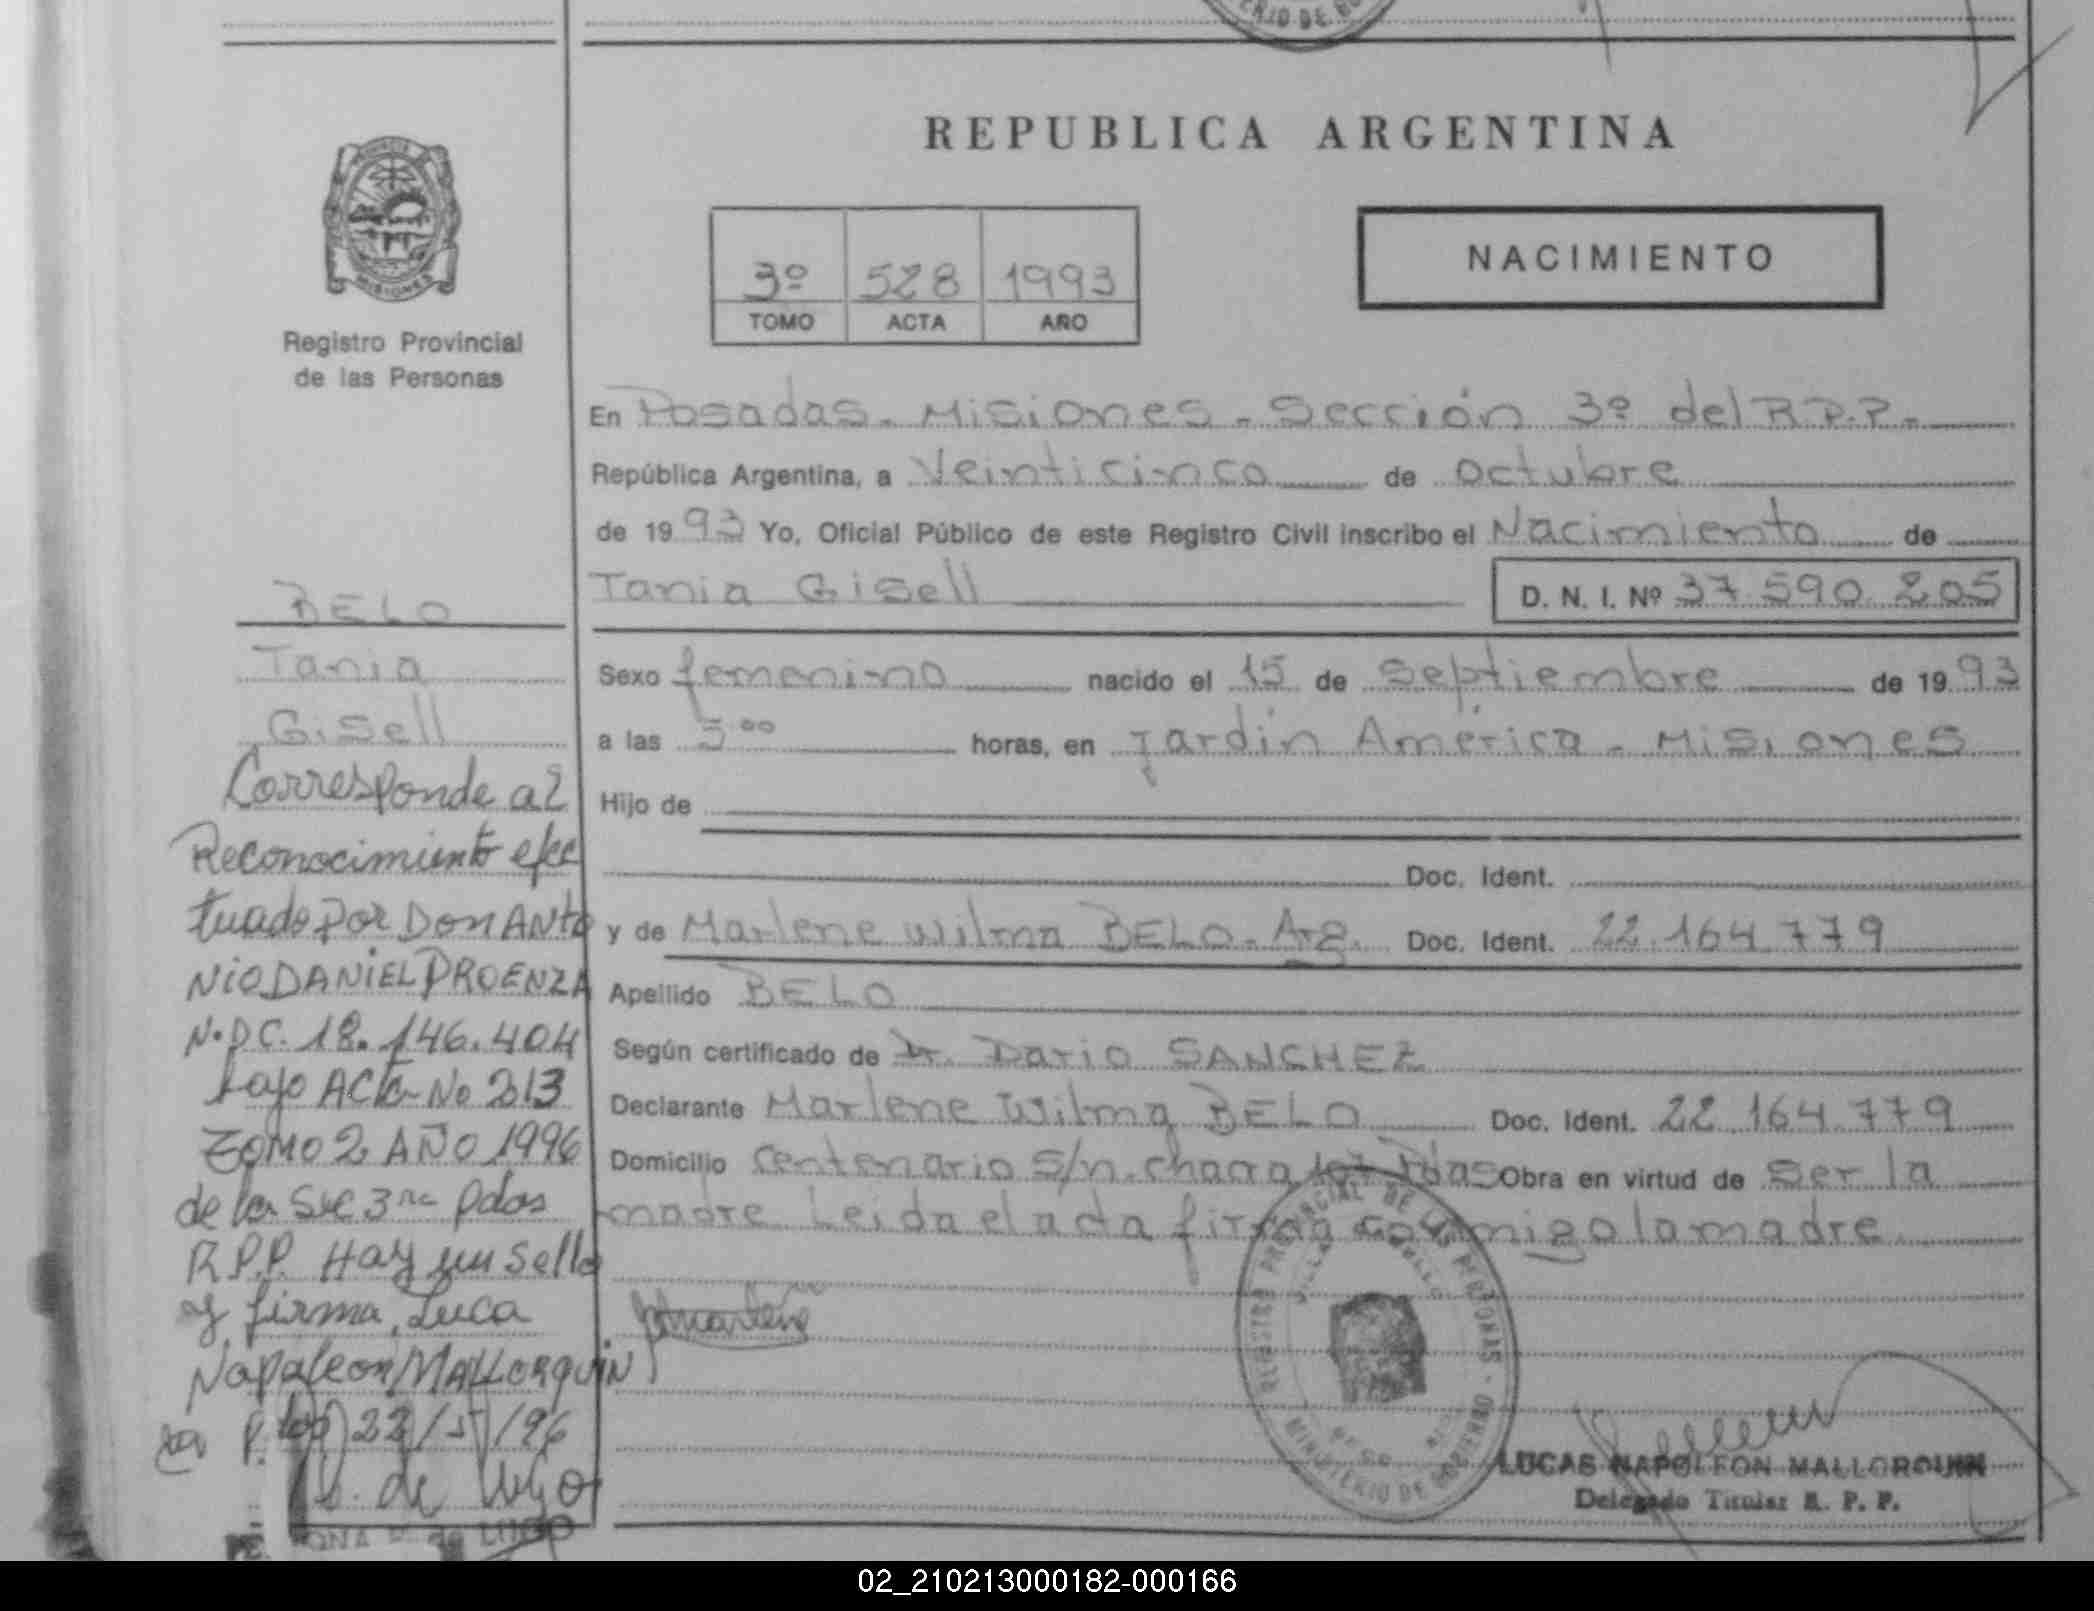 REPUBLICA ARGENTINA
NACIMIENTO
3º 528 1993
TOMO ACTA AÑO
MISIONES
Registro Provincial
de las Personas
En Posadas - Misiones - Sección 3º del R.P.P.-
República Argentina, a Veinticinco de octubre
de 1993 Yo, Oficial Público de este Registro Civil inscribo el Nacimiento de
Tania Gisell D. N. I. Nº 37.590.205
Sexo femenino nacido el 15 de septiembre de 1993
a las 5.00 horas, en Jardín América - Misiones
Hijo de
Doc. Ident.
y de Marlene Wilma BELO - Arg. Doc. Ident. 22.164.779
Apellido BELO
Según certificado de Dr. Dario SANCHEZ
Declarante Marlene Wilma BELO Doc. Ident. 22.164.779
Domicilio Centenario S/n. chacra Pdas Obra en virtud de ser la
madre Leida el acta firma conmigo la madre
BELO
Tania
Gisell
Corresponde al
Reconocimiento efec
tuado por Don ANTO
NIO DANIEL PROENZA
N.DC. 18.146.404
bajo ACta No 213
TOMO 2 AÑO 1996
de la Sec 3ra Pdas
R.P.P. Hay un sello
y firma, Luca
Napoleon MALLORQUIN
22/5/96
REGISTRO PROVINCIAL DE LAS PERSONAS - MINISTERIO DE GOBIERNO
LUCAS NAPOLEON MALLORQUIN
Delegado Titular R. P. P.
de LUGO
02_210213000182-000166